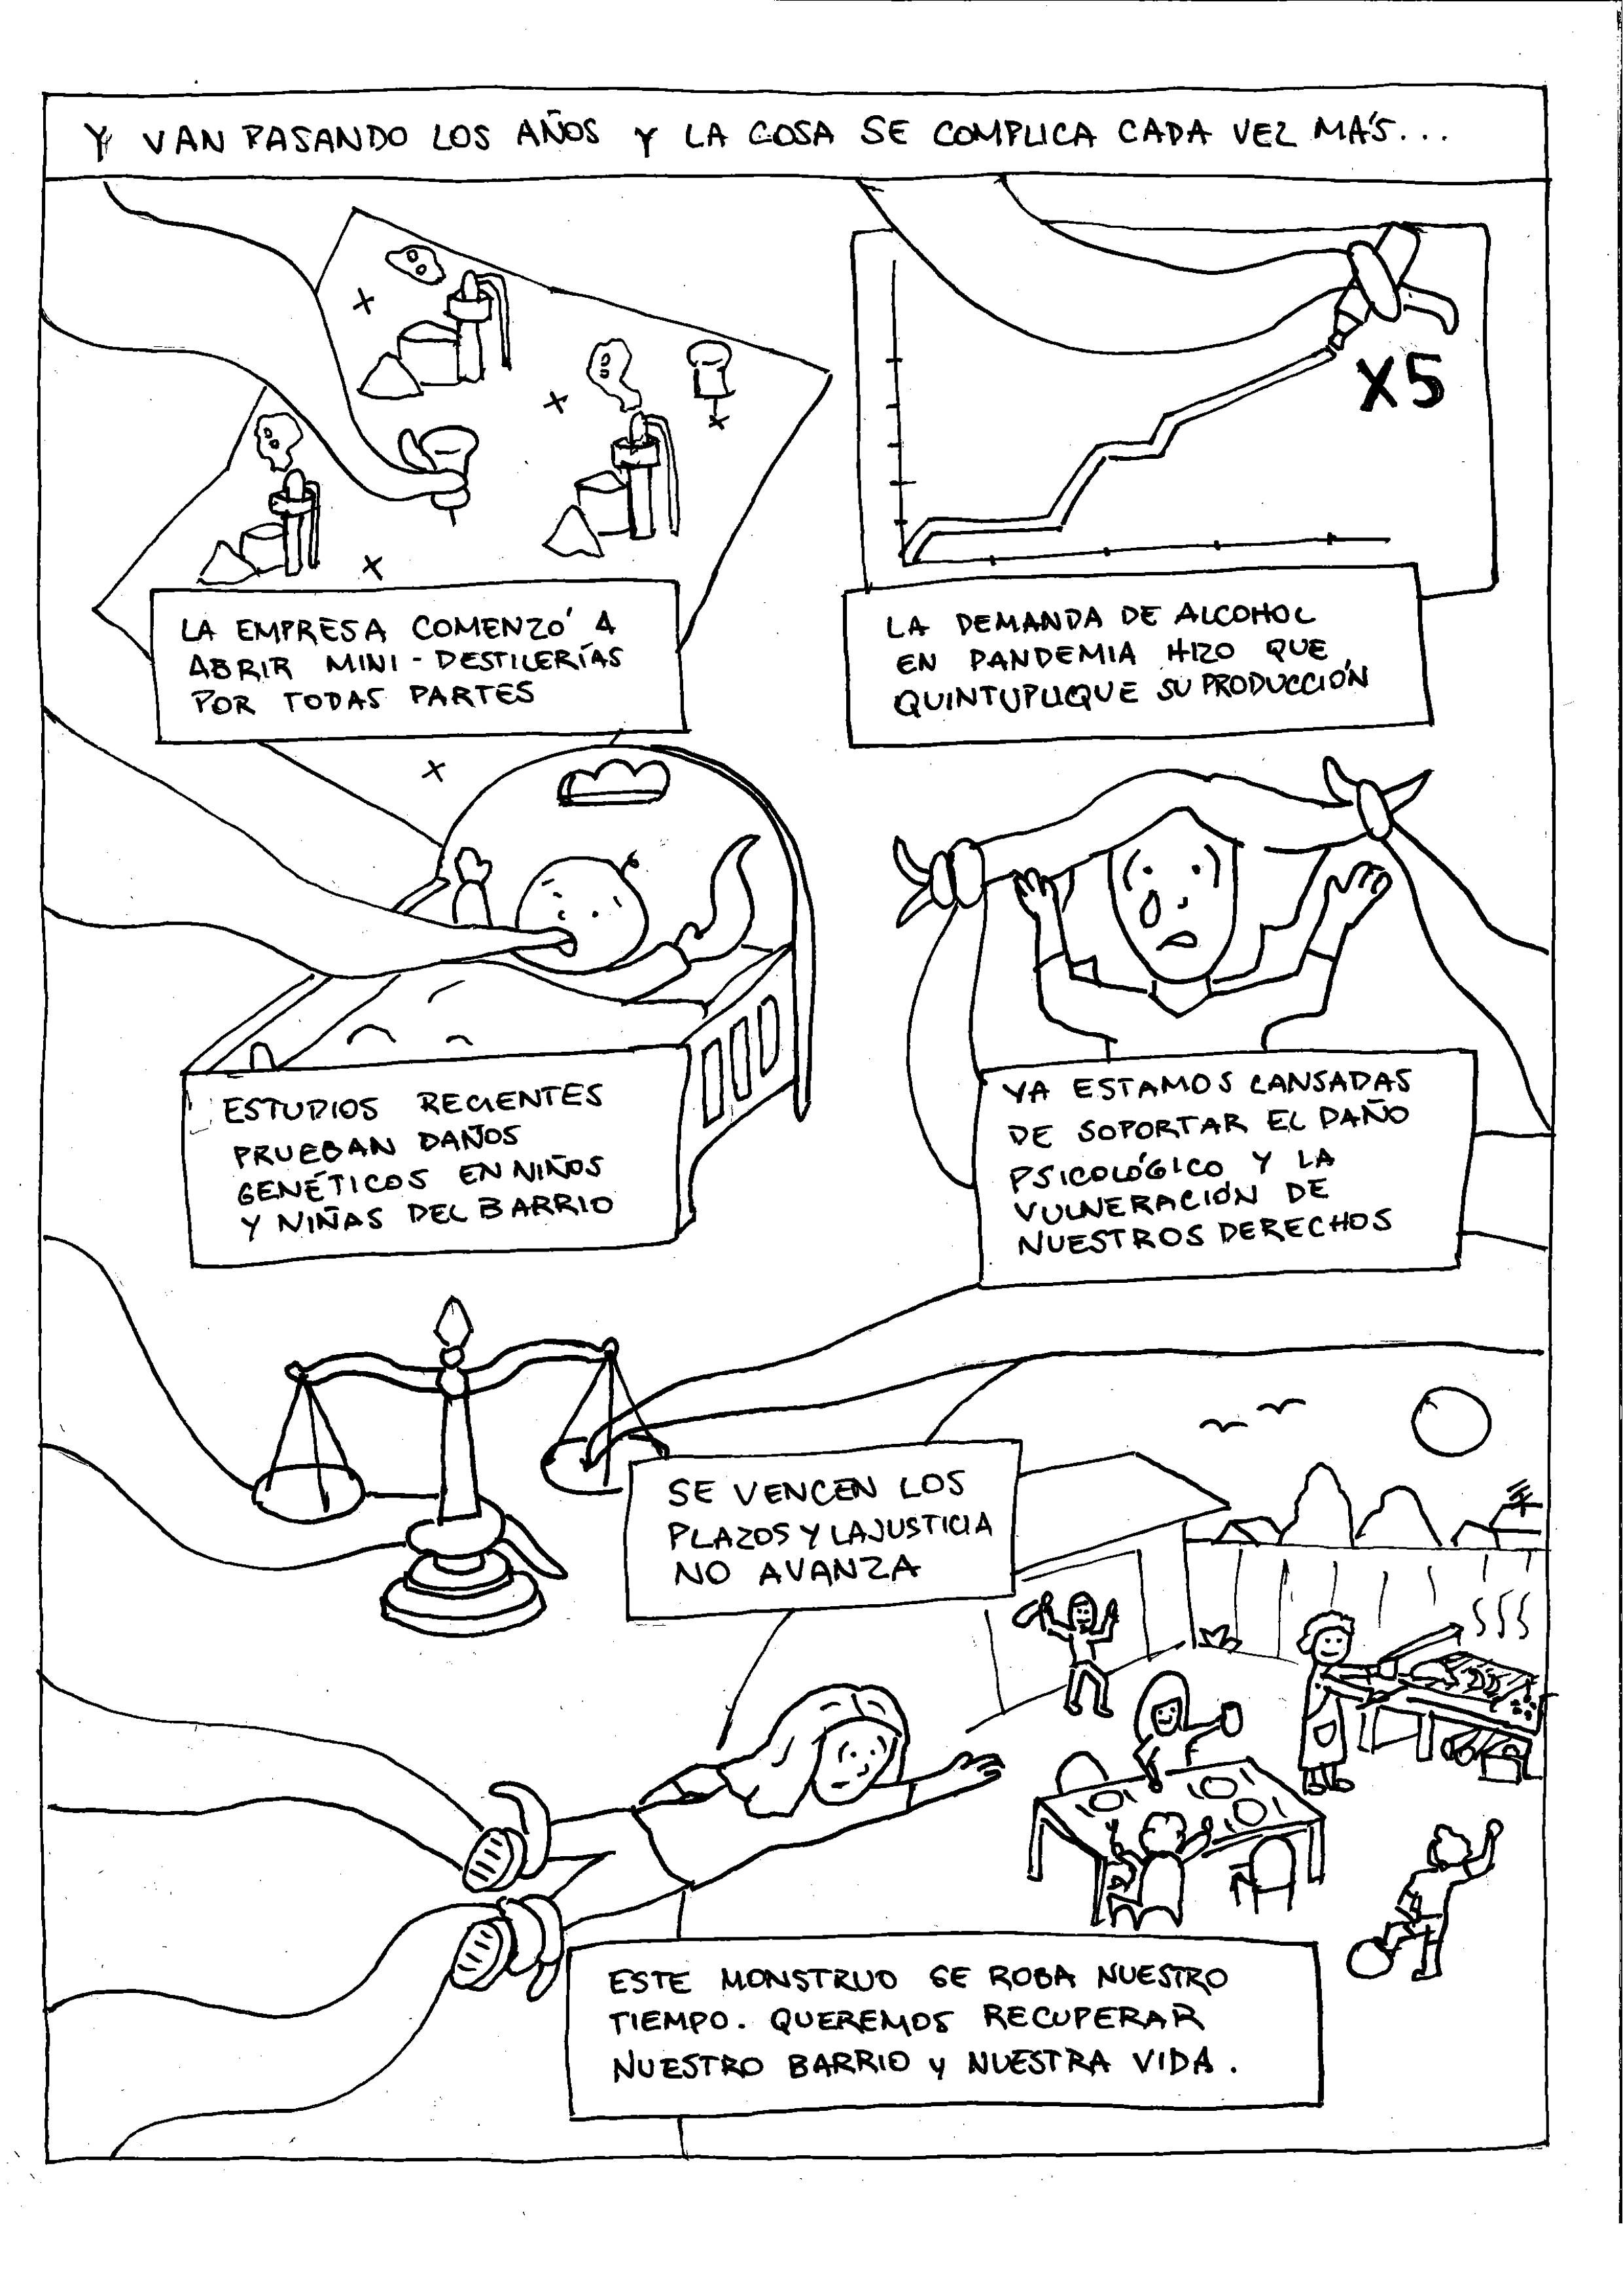 Y VAN PASANDO LOS AÑOS Y LA COSA SE COMPLICA CADA VEZ MÁS...
LA EMPRESA COMENZÓ A
ABRIR MINI-DESTILERÍAS
POR TODAS PARTES
X5
LA DEMANDA DE ALCOHOL
EN PANDEMIA HIZO QUE
QUINTUPLIQUE SU PRODUCCIÓN
ESTUDIOS RECIENTES
PRUEBAN DAÑOS
GENÉTICOS EN NIÑOS
Y NIÑAS DEL BARRIO
YA ESTAMOS CANSADAS
DE SOPORTAR EL DAÑO
PSICOLÓGICO Y LA
VULNERACIÓN DE
NUESTROS DERECHOS
SE VENCEN LOS
PLAZOS Y LA JUSTICIA
NO AVANZA
ESTE MONSTRUO SE ROBA NUESTRO
TIEMPO. QUEREMOS RECUPERAR
NUESTRO BARRIO Y NUESTRA VIDA.